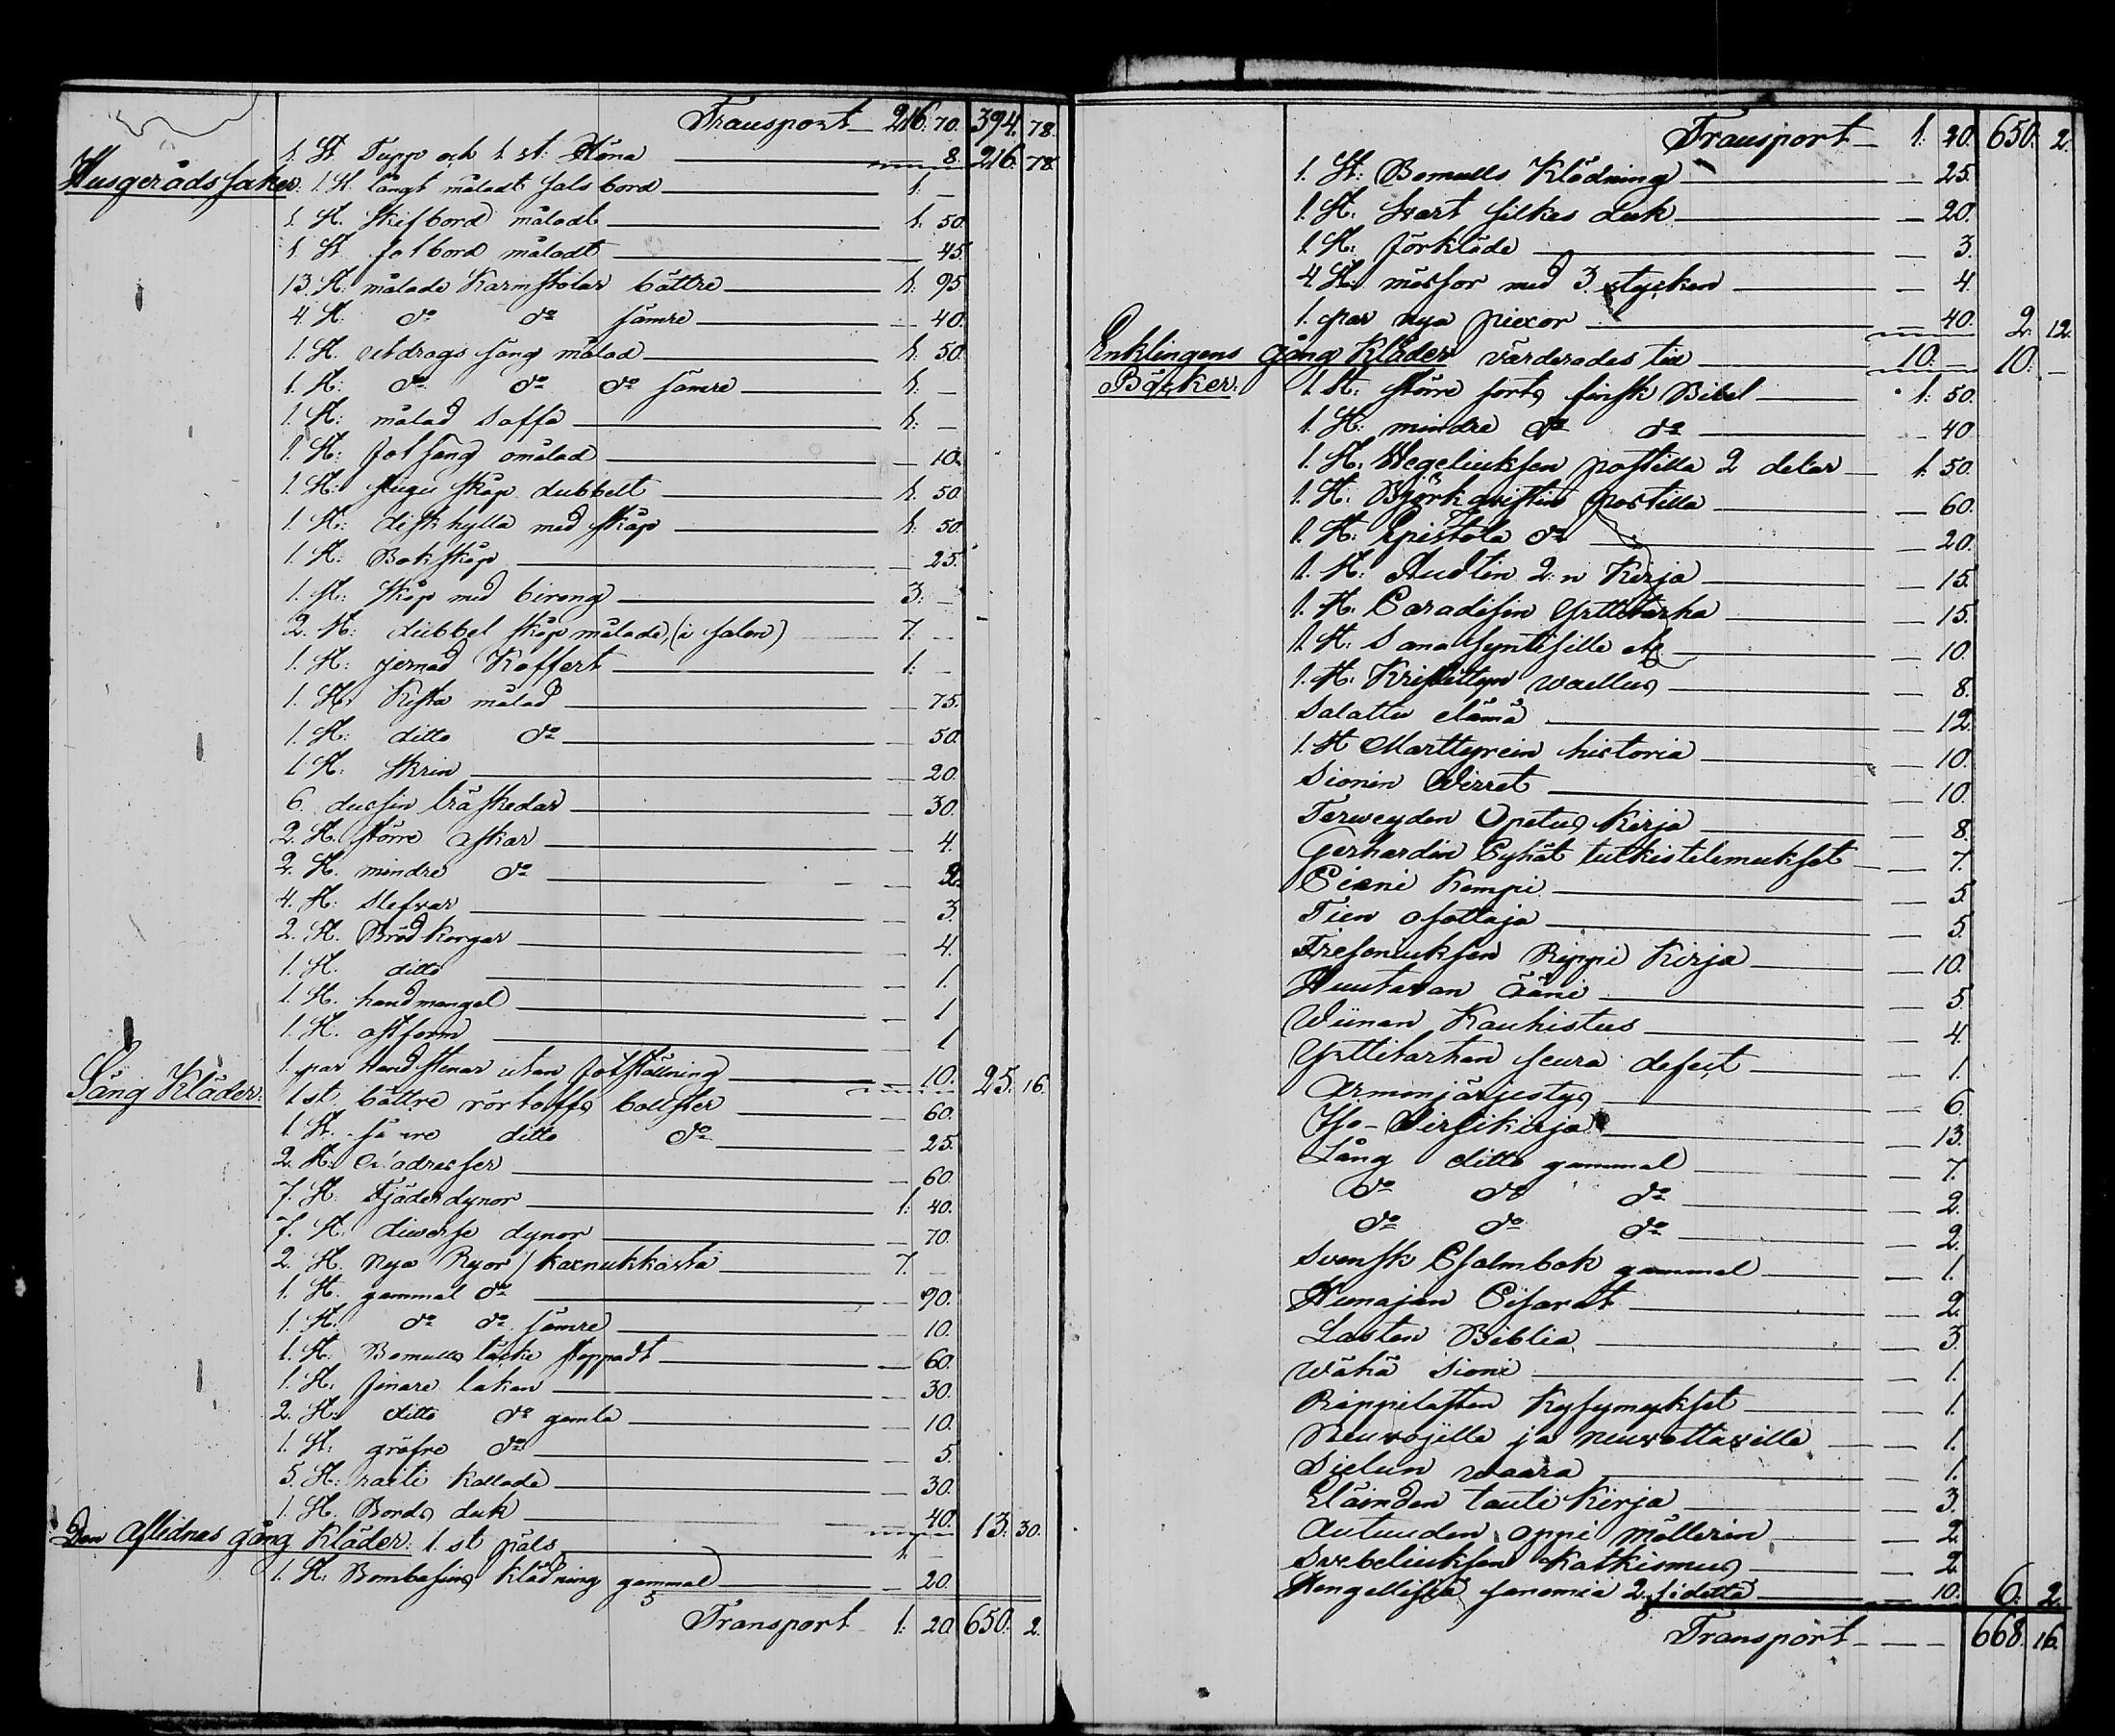 Transport 216. 70. 394. 78.
1. St. Tupp och 1. st: Höna 8. 216. 78.
Husgerådssaker. 1. St. långt måladt salsbord 1. —
1. St. Skifbord måladt 1. 50.
1. St. fotbord måladt 45.
13. St. målade Karmstolar bättre 1. 95
4. St. do do sämre 40.
1. St. utdrags säng målad 1. 50.
1. St: do do do sämre 1. —
1. St: målad Saffa 1. —
1. St: fotsäng omålad 10.
1. St: skåp dubbelt 1. 50
1. St: diskhylla med skåp 1. 50.
1. St. Bokskåp 25.
1. St: skåp med birong 3. —
2. St: dubbel skåp målade, (i salen) 7. —
1. St: jernad Koffert 1. —
1. St: Kista målad 75.
1. St: ditto do 50.
1. St. Skrin 20.
6. dussin träskedar 30.
2. St. större askar 4.
2. St. mindre do 2.
4. St: slefvar 3.
2. St. Brödkorgar 4.
1. St. ditto 1.
1. St. handmangel 1
1. St. ostform 1
1. par handstenar utan fotställning 10. 25. 16.
Säng Kläder. 1 st. bättre rörtoffs bolster 60.
1. St. sämre ditto do 25.
2. St. Madrasser 60.
7. St. Fjäderdynor 1. 40.
7. St: diverse dynor 70.
2. St. Nya Ryor / karnukkasta 7. —
1. St. gammal do 90.
1. St. do do sämre 10.
1. St. Bomulls täcke stoppadt 60.
1. St. finare lakan 30.
2. St: ditto do gamla 10.
1. St: gröfre do 5.
5. St: raiti kallade 30.
1. St. Bords duk 40. 13. 30.
Den Aflidnas gång Kläder: 1. st päls 1. —
1. St: Bombasins klädning gammal 20.
Transport 1. 20 650. 2.
Transport 1. 20. 650. 2.
1. St: Bomulls Klädning 25.
1. St: Svart silkes duk 20.
1. St: förkläde 3.
4 St: mössor med 3. stycken 4
1. par nya piexor 40. 2. 12.
Enklingens gång Kläder värderades till 10. — 10. —
Böcker. 1. St. större sorts finsk Bibel 1. 50.
1. St: mindre do do 40
1. St. Wegeliuksen postilla 2 delar 1. 50.
1. St: Björkqvistin postilla 60.
1. St: Epistola do 20.
1. St: Andtin 2:n Kirja 15.
1. St: Paradisin Yrttitarha 15.
1. St: Sana syntisille 10.
1. St. Kristityn waellus 8.
Salattu elämä 12.
1. St Marttyrein historia 10.
Sionin Wirret 10.
Terweyden Opetus Kirja 8.
Gerhardin Pyhät tutkistelemukset 7.
Pieni Kempi 5.
Tien osottaja 5.
Freseniuksen Rippi Kirja 10.
Huutavan Ääni 5
Wiinan Kauhistus 4.
Yrttitarhan seura defect 1.
Armonjärjestys 6.
Iso-Wirsikirja 13.
Lång ditto gammal 7.
do do do 2.
do do do 2.
Svensk Psalmbok gammal 1.
Hunajan Pisarat 2.
Lasten Biblia 3.
Wähä Sioni 1.
Rippilasten Kysymykset 1.
Neuvojille ja neuvottaville 1.
Sielun waara 1.
Eläinden tauti Kirja 3.
Autuuden oppi Möllerin 2
Svebeliuksen Katkismus 2.
Hengellisiä sanomia 2. sidettä 10. 6. 2.
Transport 668. 16.